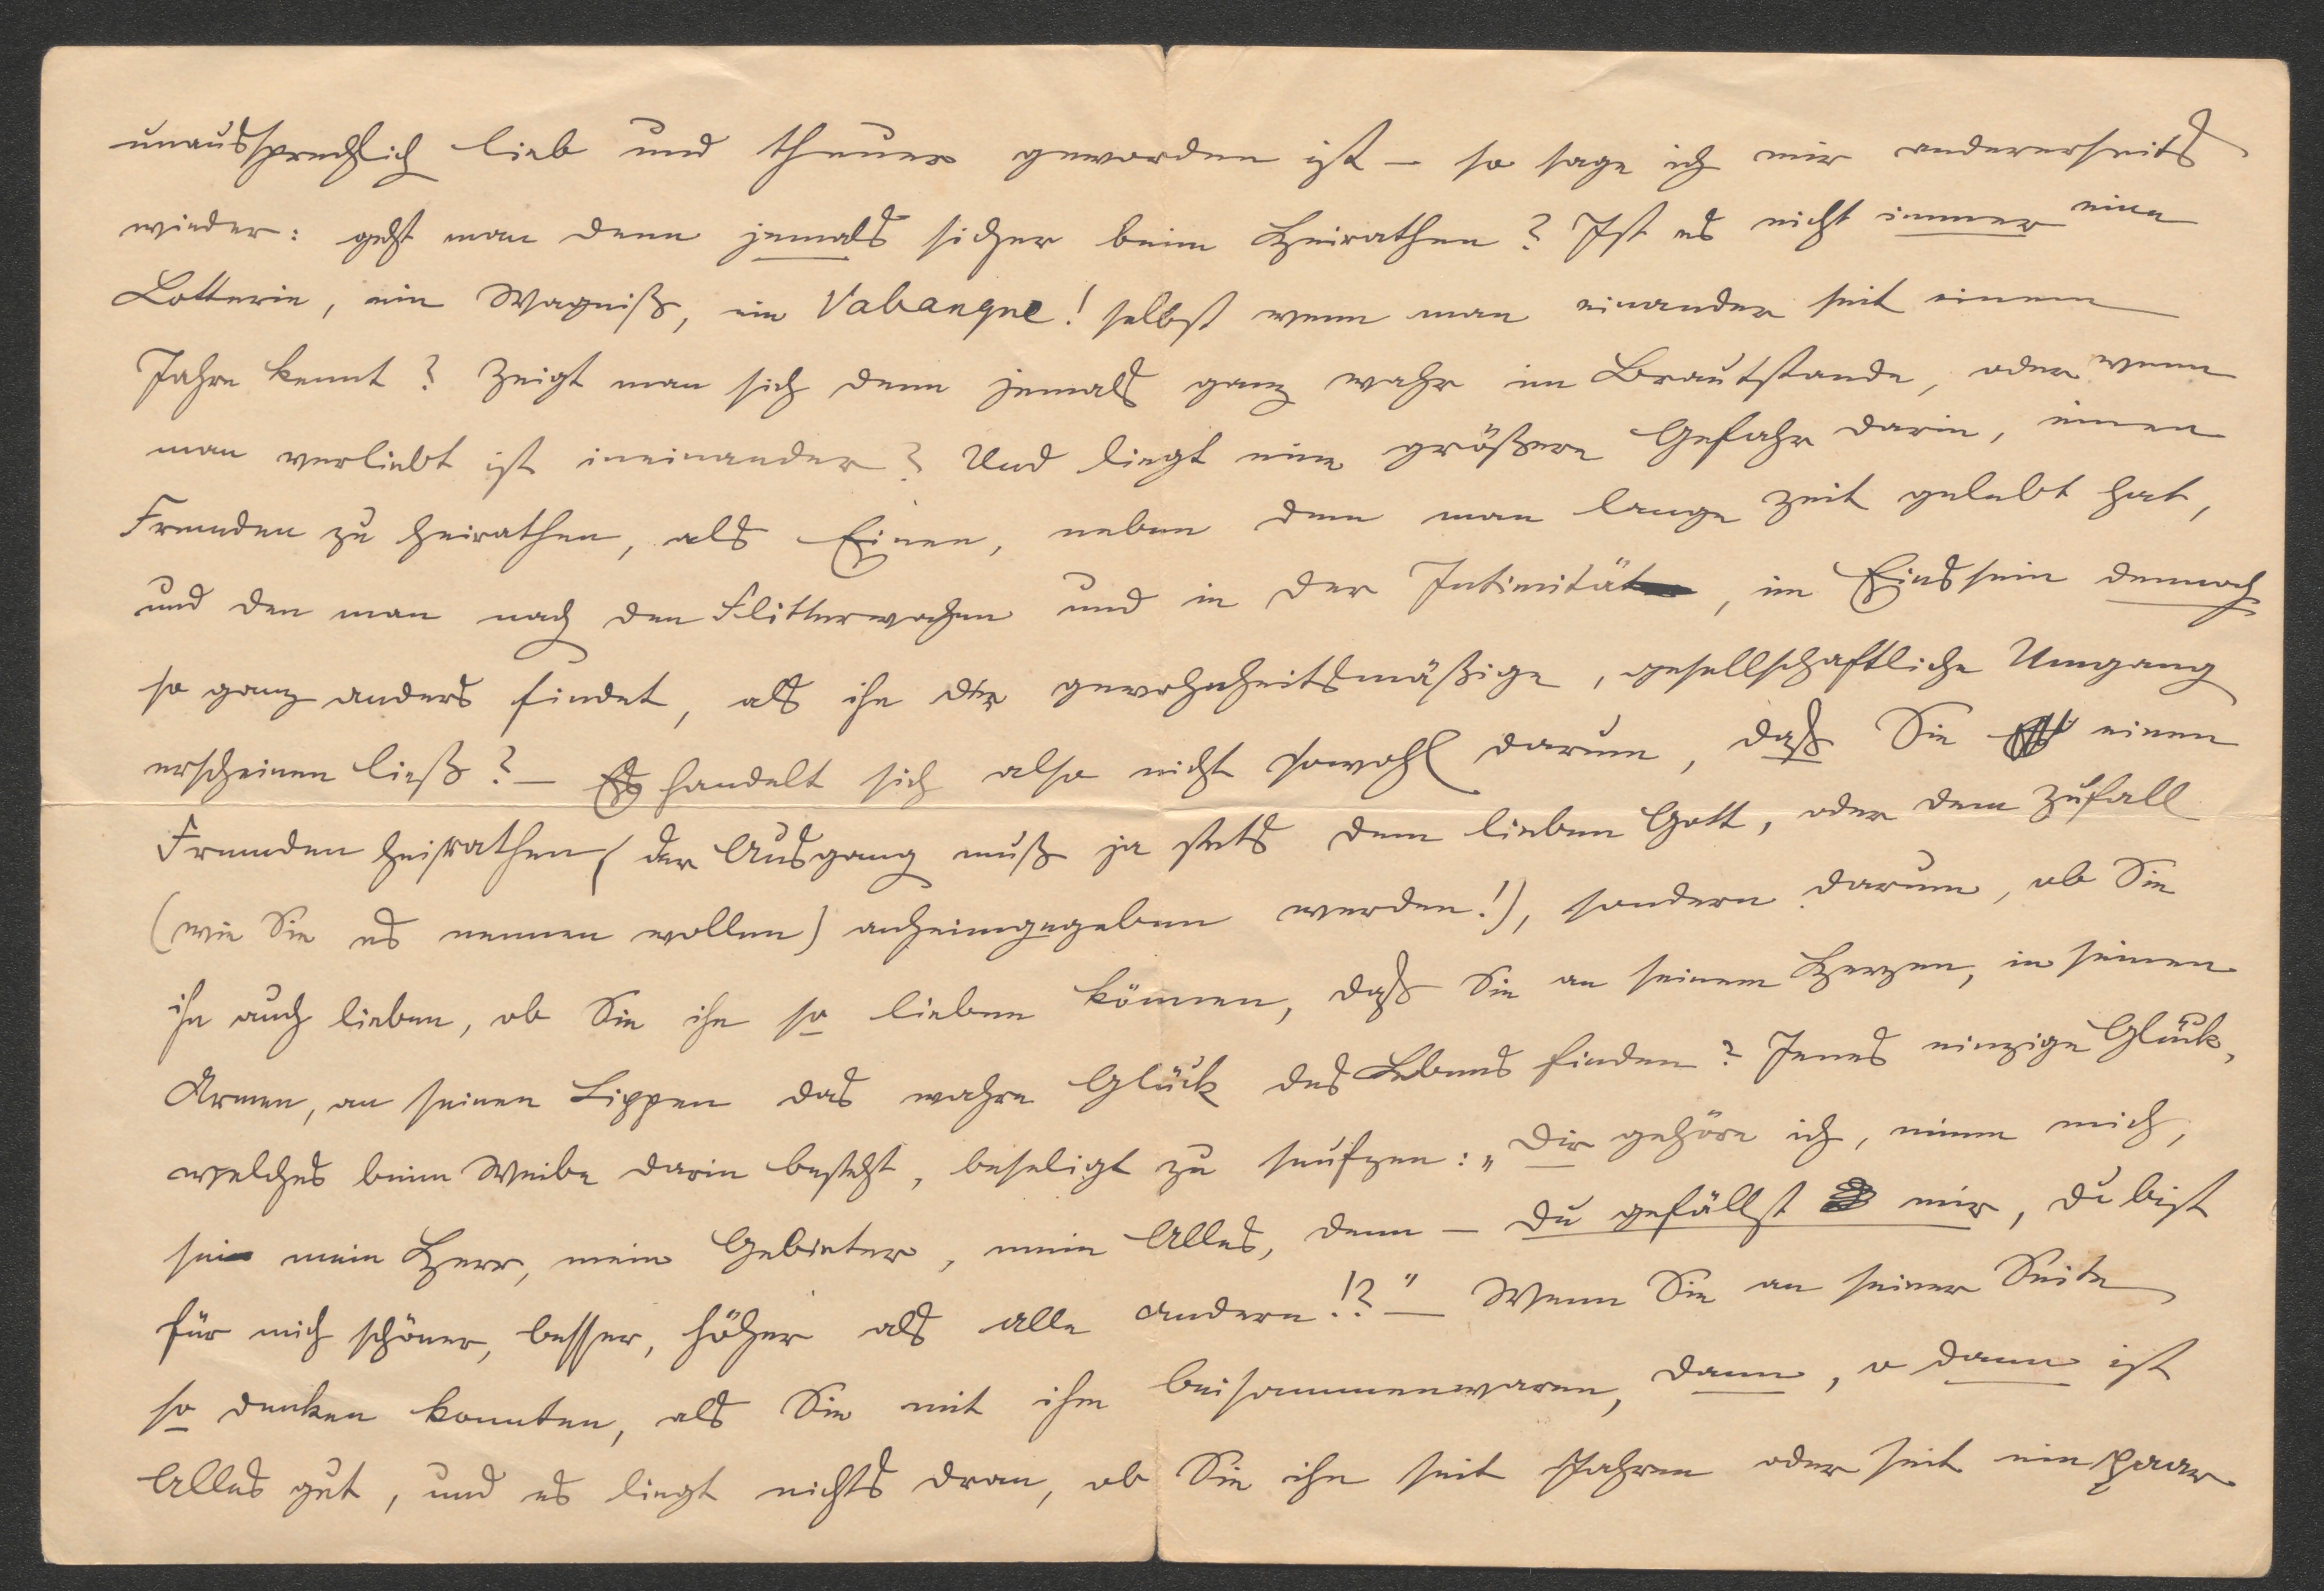 unaussprechlich lieb und theuer geworden ist – so sage ich mir andererseits
wieder: geht man denn jemals sicher beim Heirathen? Ist es nicht immer eine
Lotterie, ein Wagniß, ein Vabanque! selbst wenn man einander seit einem
Jahre kennt? Zeigt man sich denn jemals ganz wahr im Brautstande, oder wenn
man verliebt ist ineinander? Und liegt eine größere Gefahr darin, einen
Fremden zu heirathen, als Einen, neben dem man lange Zeit gelebt hat,
und den man nach den Flitterwochen und in der Intimität, im Einssein dennoch
so ganz anders findet, als ihn der gewohnheitsmäßige, gesellschaftliche Umgang
erscheinen ließ? – Es handelt sich also nicht sowohl darum, daß Sie einen
Fremden heirathen (der Ausgang muß ja stets dem lieben Gott, oder dem Zufall
(wie Sie es nennen wollen) anheimgegeben werden!), sondern darum, ob Sie
ihn auch lieben, ob Sie ihn so lieben können, daß Sie an seinem Herzen, in seinen
Armen, an seinen Lippen das wahre Glück des Lebens finden? Jenes einzige Glück,
welches beim Weibe darin besteht, beseligt zu seufzen: „Dir gehöre ich, nimm mich,
sei mein Herr, mein Gebieter, mein Alles, denn – du gefällst mir, du bist
für mich schöner, besser, höher als alle andern!?" – Wenn Sie an seiner Seite
so denken konnten, als Sie mit ihm beisammenwaren, dann, o dann ist
Alles gut, und es liegt nichts dran, ob Sie ihn seit Jahren oder seit ein paar